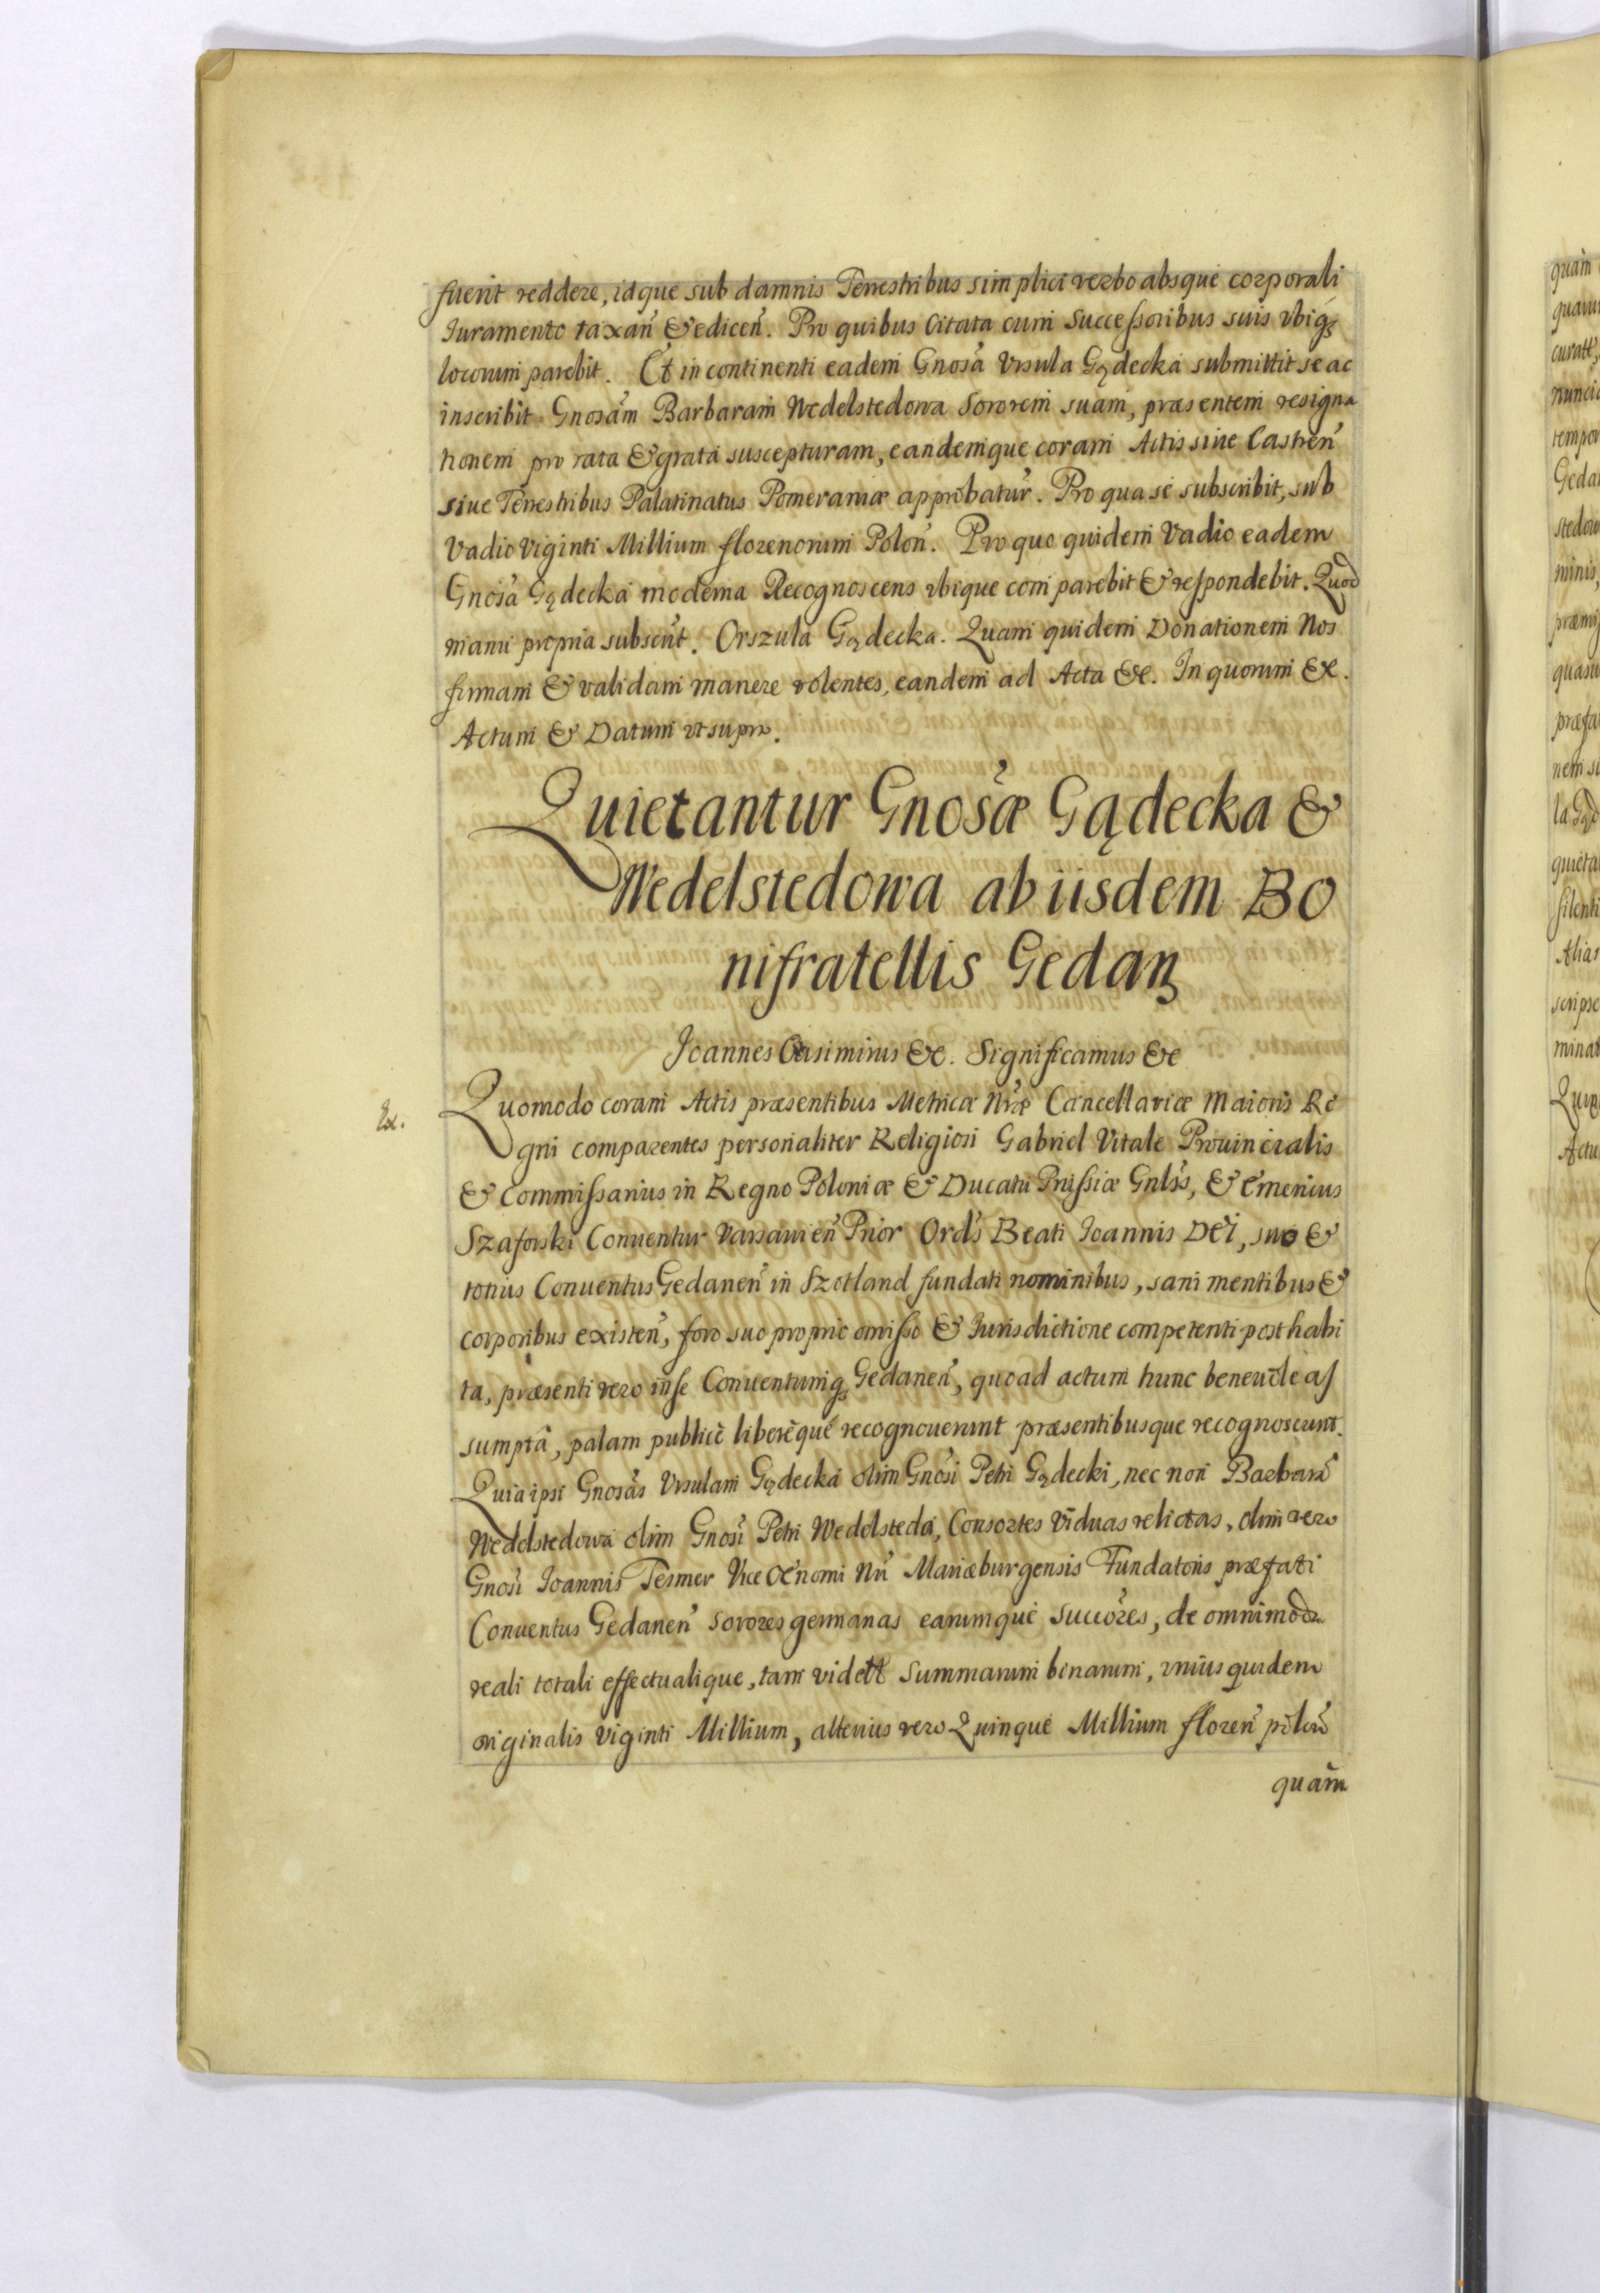 fuerit reddere, idque sub damnis Terrestribus simplici verbo absque corporali
Iuramento taxań & ediceń. Pro quibus Citata cum Successoribus suis vbiq3
locorum parebit. Et in continenti eadem Gnosa Vrsula Gądecka submittit se ac
inscribit Gnosam Barbaram Wedelstedowa Sororem suam, præsentem resigna
tionem pro rata & grata suscepturam, eandemque coram Actis siue Castreń
siue Terrestribus Palatinatus Pomeraniæ approbatur. Pro qua se subscribit, sub
Vadio Viginti Millium florenorum Poloń. Pro quo quidem Vadio eadem
Gnosa Gądecka moderna Recognoscens vbique comparebit & respondebit. Quod
manu propria subscrit. Orszula Gądecka. Quam quidem Donationem Nos
firmam & validam manere volentes, eandem ad Acta &c. In quorum &c.
Actum & Datum vt supra.
Quietantur Gnosæ Gądecka &
Wedelstedowa ab iisdem Bo
nifratellis Gedan3
Joannes Casimirus &c. Significamus &c
Ix.
Quomodo coram Actis præsentibus Metricæ Nræ Cancellariæ Maioris Re
gni comparentes personaliter Religiosi Gabriel Vitale Prouincialis
& Commissarius in Regno Poloniæ & Ducatu Prussiæ Gnlis, & Emericus
Szaforski Conuentur Varsauień Prior Ordis Beati Joannis Dei, suo &
totius Conuentus Gedaneń in Szotland fundati nominibus, sani mentibus &
corporibus existeń, foro suo proprio omisso & Jurisdictione competenti posthabi
ta, præsenti vero in se Conuentumq3 Gedaneń, quoad actum hunc beneuole as
sumptâ, palam publicè liberèque recognouerunt præsentibusque recognoscunt.
Quia ipsi Gnosas Vrsulam Gądecka olim Gnosi Petri Gądecki, nec non Barbarã
Wedelstedowa olim Gnosi Petri Wedelsteda, Consortes Viduas relictas, olim vero
Gnosi Joannis Tesmer Vice Œnomi Nri Mariæburgensis Fundatoris præfati
Conuentus Gedaneń sorores germanas earumque Succores, de omnimoda
reali totali effectualique, tam videlt Summarum binarum, vnius quidem
originalis Viginti Millium, alterius vero Quinque Millium floreń poloń
quam